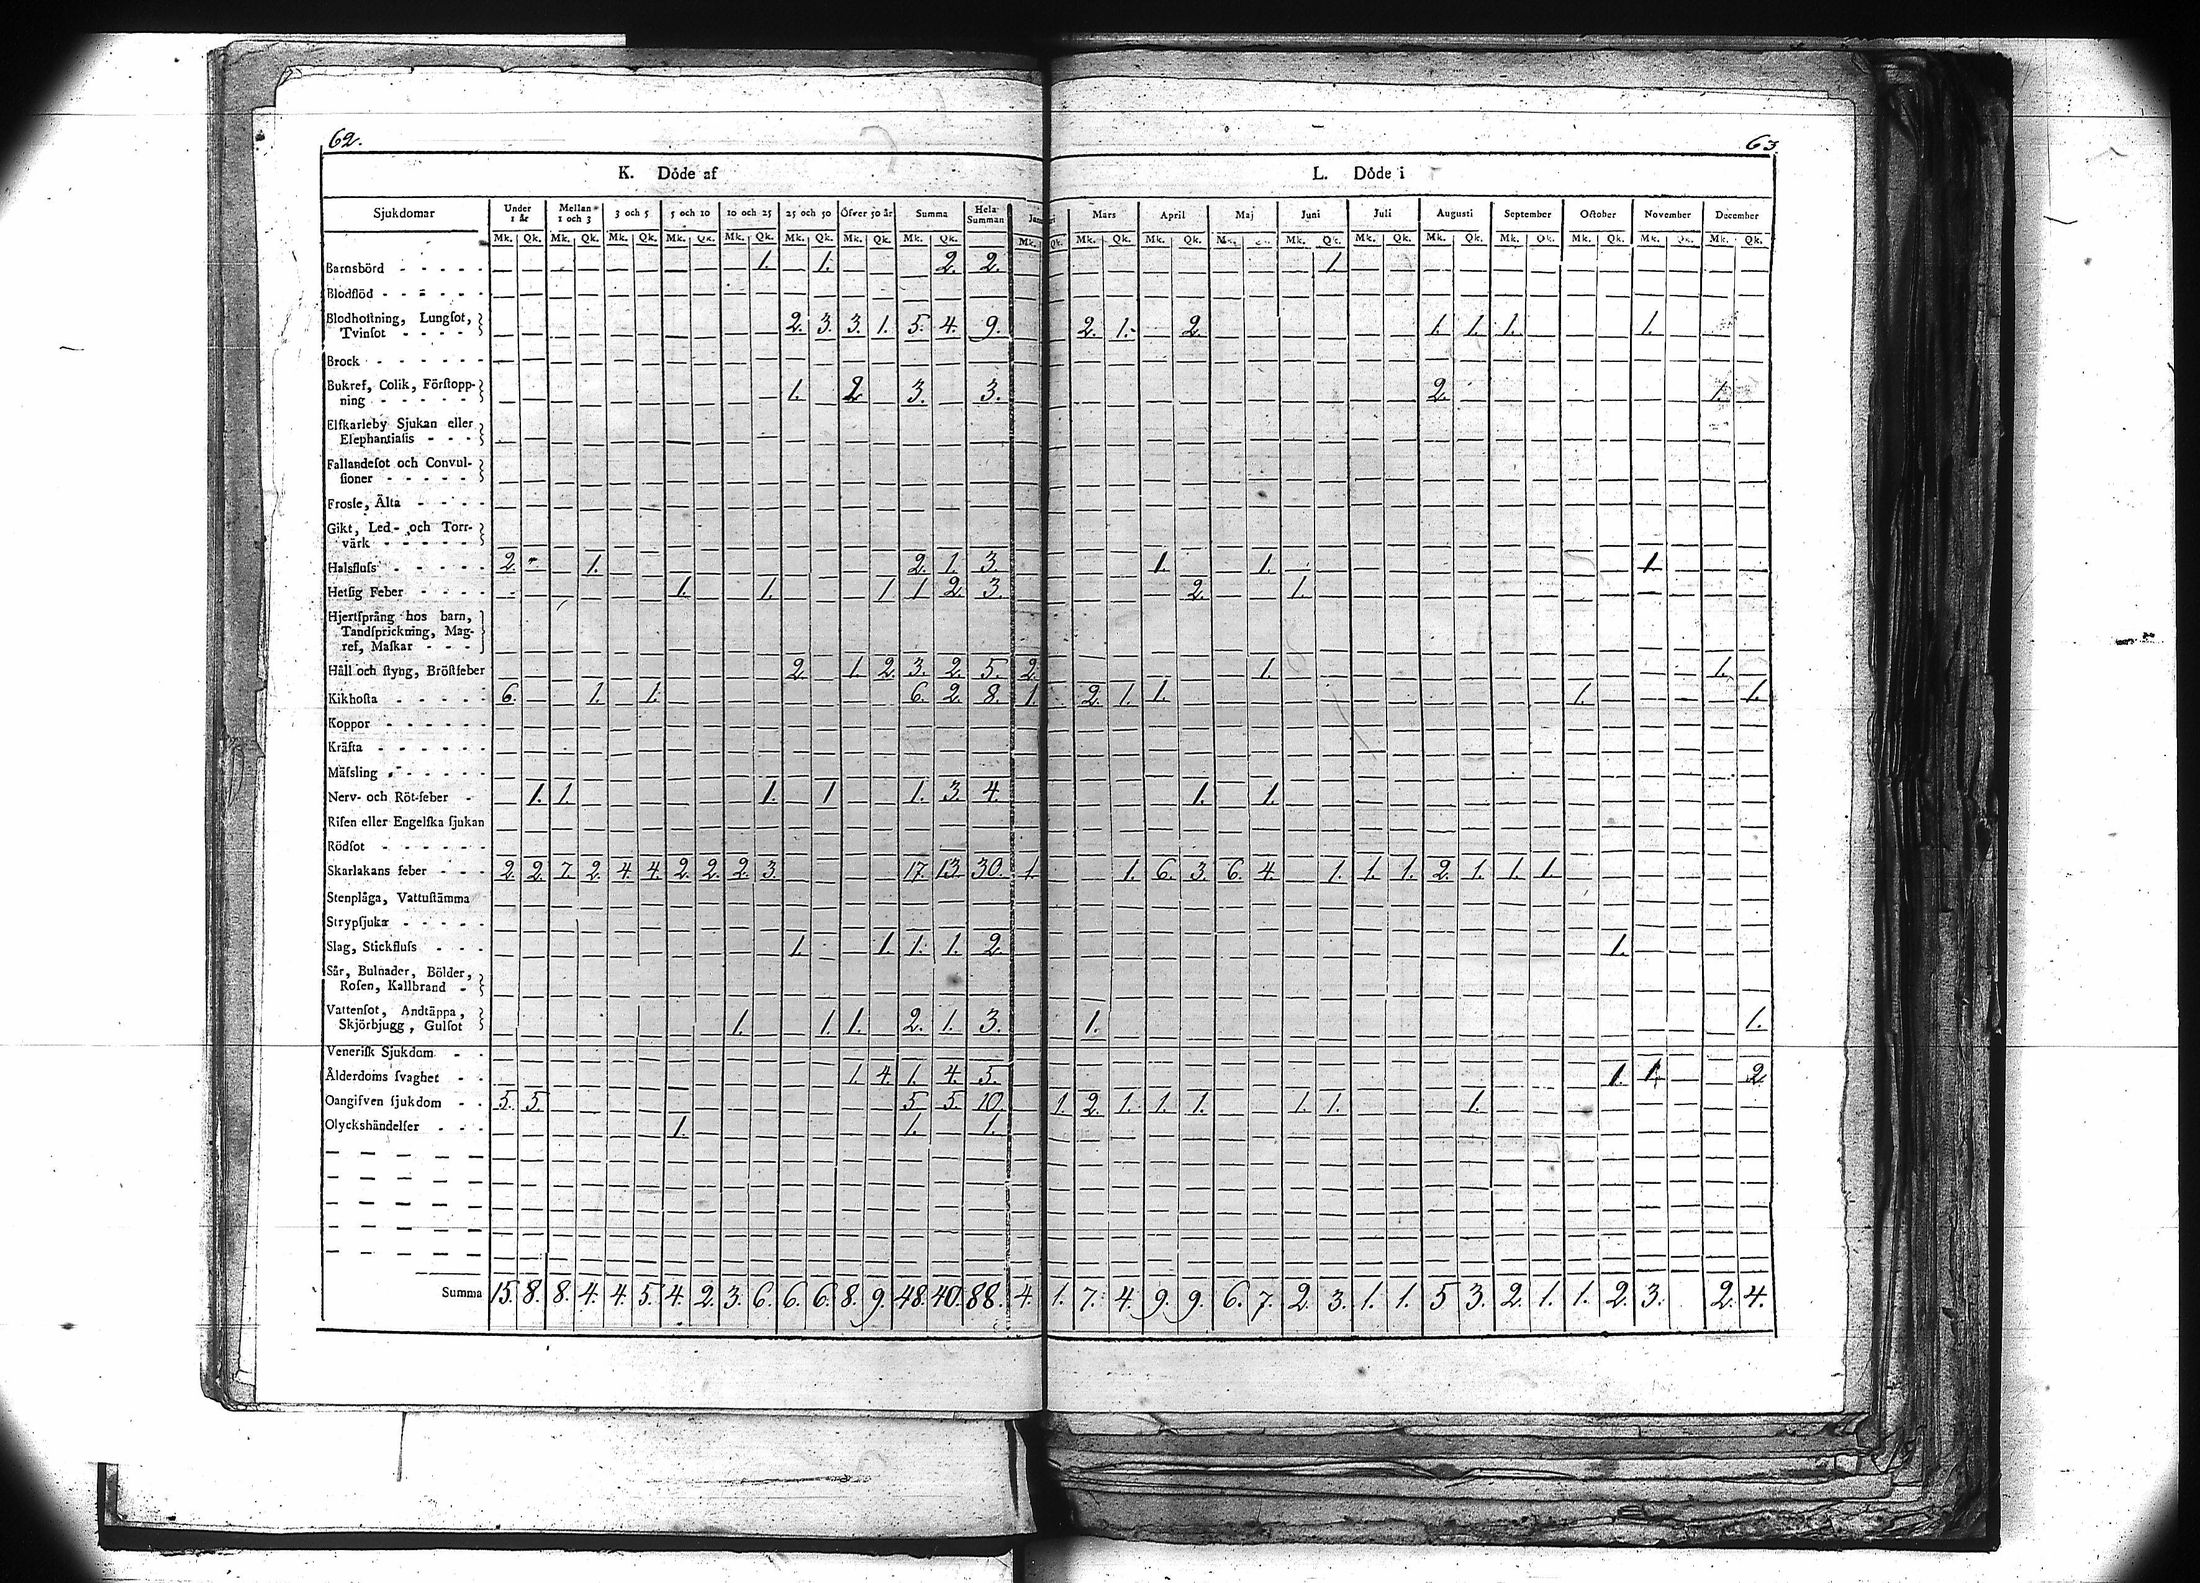 62.
63.
K. Döde af
L. Döde i
Sjukdomar | Under 1 år | Mellan 1 och 3 | 3 och 5 | 5 och 10 | 10 och 25 | 25 och 50 | Öfver 50 år | Summa | Hela Summan | Mars | April | Maj | Juni | Juli | Augusti | September | October | November | December
Mk. Qk. Mk. Qk. Mk. Qk. Mk. Qk. Mk. Qk. Mk. Qk. Mk. Qk. Mk. Qk. Mk. Qk. Mk. Qk. Mk. Qk. Mk. Qk. Mk. Qk. Mk. Qk. Mk. Qk. Mk. Qk. Mk. Qk. Mk. Qk. Mk. Qk.
Barnsbörd - - - - - 1. 1. 2. 2. 1.
Blodflöd - - - - - -
Blodhostning, Lungſot,
Tvinſot - - - - 2. 3. 3. 1. 5. 4. 9. 2. 1. 2. 1. 1. 1. 1.
Brock - - - - - -
Bukref, Colik, Förſtopp-
ning - - - - - 1. 2 3. 3. 2. 1.
Elfkarleby Sjukan eller
Elephantiaſis - - -
Fallandeſot och Convul-
ſioner - - - - -
Frosſe, Älta - - - -
Gikt, Led- och Torr-
värk - - - - -
Halsfluſs - - - - - 2. 1. 2. 1. 3. 1. 1. 1.
Hetſig Feber - - - - 1. 1. 1 1 2. 3. 2. 1.
Hjertſprång hos barn,
Tandſprickning, Mag-
ref, Maſkar - - -
Håll och ſtyng, Bröſtfeber 2. 1. 2. 3. 2. 5. 2. 1. 1.
Kikhoſta - - - - - 6. 1. 1. 6. 2. 8. 1. 2. 1. 1. 1. 1.
Koppor - - - - - -
Kräfta - - - - - -
Mäſsling - - - - - -
Nerv- och Röt-feber - 1. 1. 1. 1 1. 3. 4. 1. 1.
Riſen eller Engelſka ſjukan
Rödſot - - - - - -
Skarlakans feber - - - 2. 2. 7. 2. 4. 4. 2. 2. 2. 3. 17. 13. 30. 1. 1. 6. 3. 6. 4. 1. 1. 1. 2. 1. 1. 1.
Stenplåga, Vattuſtämma
Strypſjuka - - - - -
Slag, Stickfluſs - - - 1. 1. 1. 1. 2. 1.
Sår, Bulnader, Bölder,
Roſen, Kallbrand -
Vattenſot, Andtäppa,
Skjörbjugg, Gulſot 1. 1. 1. 2. 1. 3. 1. 1.
Veneriſk Sjukdom - -
Ålderdoms ſvaghet - - 1. 4. 1. 4. 5. 1. 1. 2.
Oangifven ſjukdom - - 5. 5. 5. 5. 10. 1. 2. 1. 1. 1. 1. 1. 1.
Olyckshändelſer - - - 1. 1. 1.
Summa 15. 8. 8. 4. 4. 5. 4. 2. 3. 6. 6. 6. 8. 9. 48. 40. 88. 4. 1. 7. 4. 9. 9. 6. 7. 2. 3. 1. 1. 5 3. 2. 1. 1. 2. 3. 2. 4.